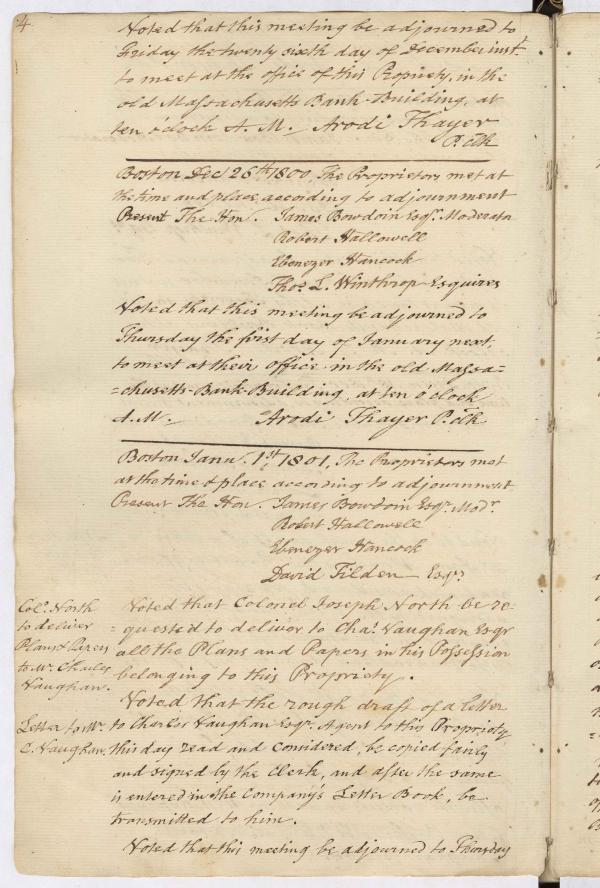 4.
Noted that this meeting be adjourned to
Friday the twenty sixth day of December inst
to meet at the office of this Propriety, in the
old Massachusetts Bank-Building, at
ten o'clock A. M. Arodi Thayer
P. Clk
Boston Dec 26th 1800, The Proprietors met at
the time and place, according to adjournment
Present The Hon. James Bowdoin Esqr. Moderator
Robert Hallowell
Ebenezer Hancock
Thos. L. Winthrop Esquires
Voted that this meeting be adjourned to
Thursday the first day of January next,
to meet at their office in the old Massa=
=chusetts-Bank-Building, at ten o'clock
A. M. Arodi Thayer P. Clk
Boston Janu. 1st. 1801, The Proprietors met
at the time & place according to adjournment
Present The Hon. James Bowdoin Esqr. Modr.
Robert Hallowell
Ebenezer Hancock
David Tilden Esqrs
Col. North
to deliver
Plans & Papers
to Mr. Charles
Vaughan.
Voted that Colonel Joseph North be re-
=quested to deliver to Chas. Vaughan Esqr
all the Plans and Papers in his Possession
belonging to this Propriety.
Letter to Mr.
C. Vaughan.
Voted that the rough draft of a Letter
to Charles Vaughan Esqr. Agent to this Propriety
this day read and considered, be copied fairly
and signed by the Clerk, and after the same
is entered in the Company's Letter Book, be
transmitted to him.
Voted that this meeting be adjourned to Thursday